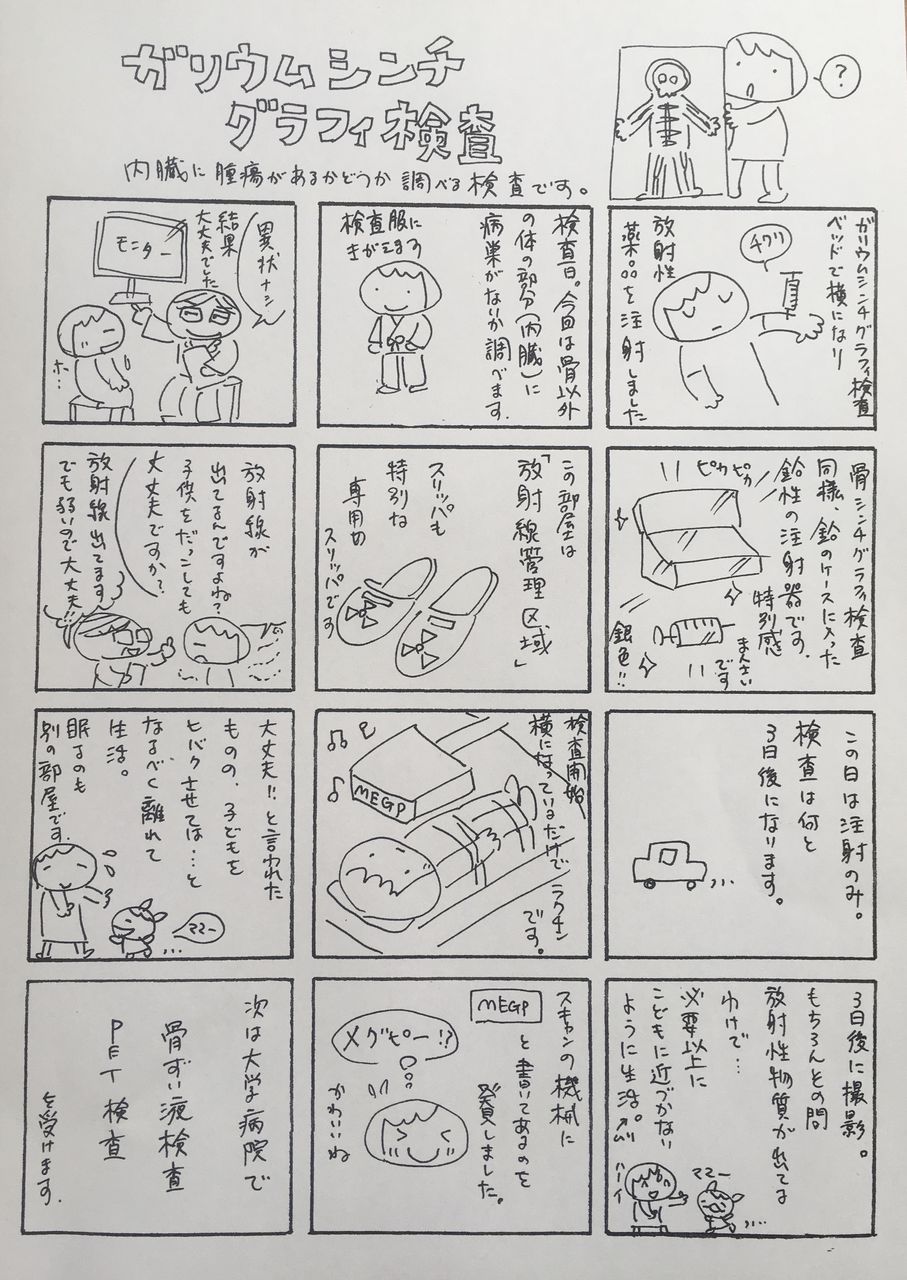 ガリウムシンチ
グラフィ検査
内臓に腫瘍があるかどうか調べる検査です。
？
ガリウムシンチグラフィ検査
ベッドで横になり
チクリ
放射性
薬品を注射しました
骨シンチグラフィ検査
同様、鉛のケースに入った
鉛性の注射器です。
特別感
まんさい
です
ピカピカ
銀色!!
この日は注射のみ。
検査は何と
3日後になります。
3日後に撮影。
もちろんその間
放射性物質が出てる
わけで…
必要以上に
こどもに近づかない
ように生活。
ママー
ハーイ
検査日。今回は骨以外
の体の部分（内臓）に
病巣がないか調べます。
検査服に
きがえます
この部屋は
「放射線管理区域」
スリッパも
特別な
専用の
スリッパです
検査開始
横になっているだけで
ラクチン
です。
MEGP
スキャンの機械に
MEGP
と書いてあるのを
発見しました。
メグピー!?
かわいいね
異状ナシ
結果
大丈夫でした
モニター
ホ…
放射線が
出てるんですよね?
子供をだっこしても
大丈夫ですか?
放射線出てます
でも弱いので大丈夫!!
大丈夫!!と言われた
ものの、子どもを
ヒバクさせては…と
なるべく離れて
生活。
眠るのも
別の部屋です。
ママー
次は大学病院で
骨ずい液検査
PET検査
を受けます。